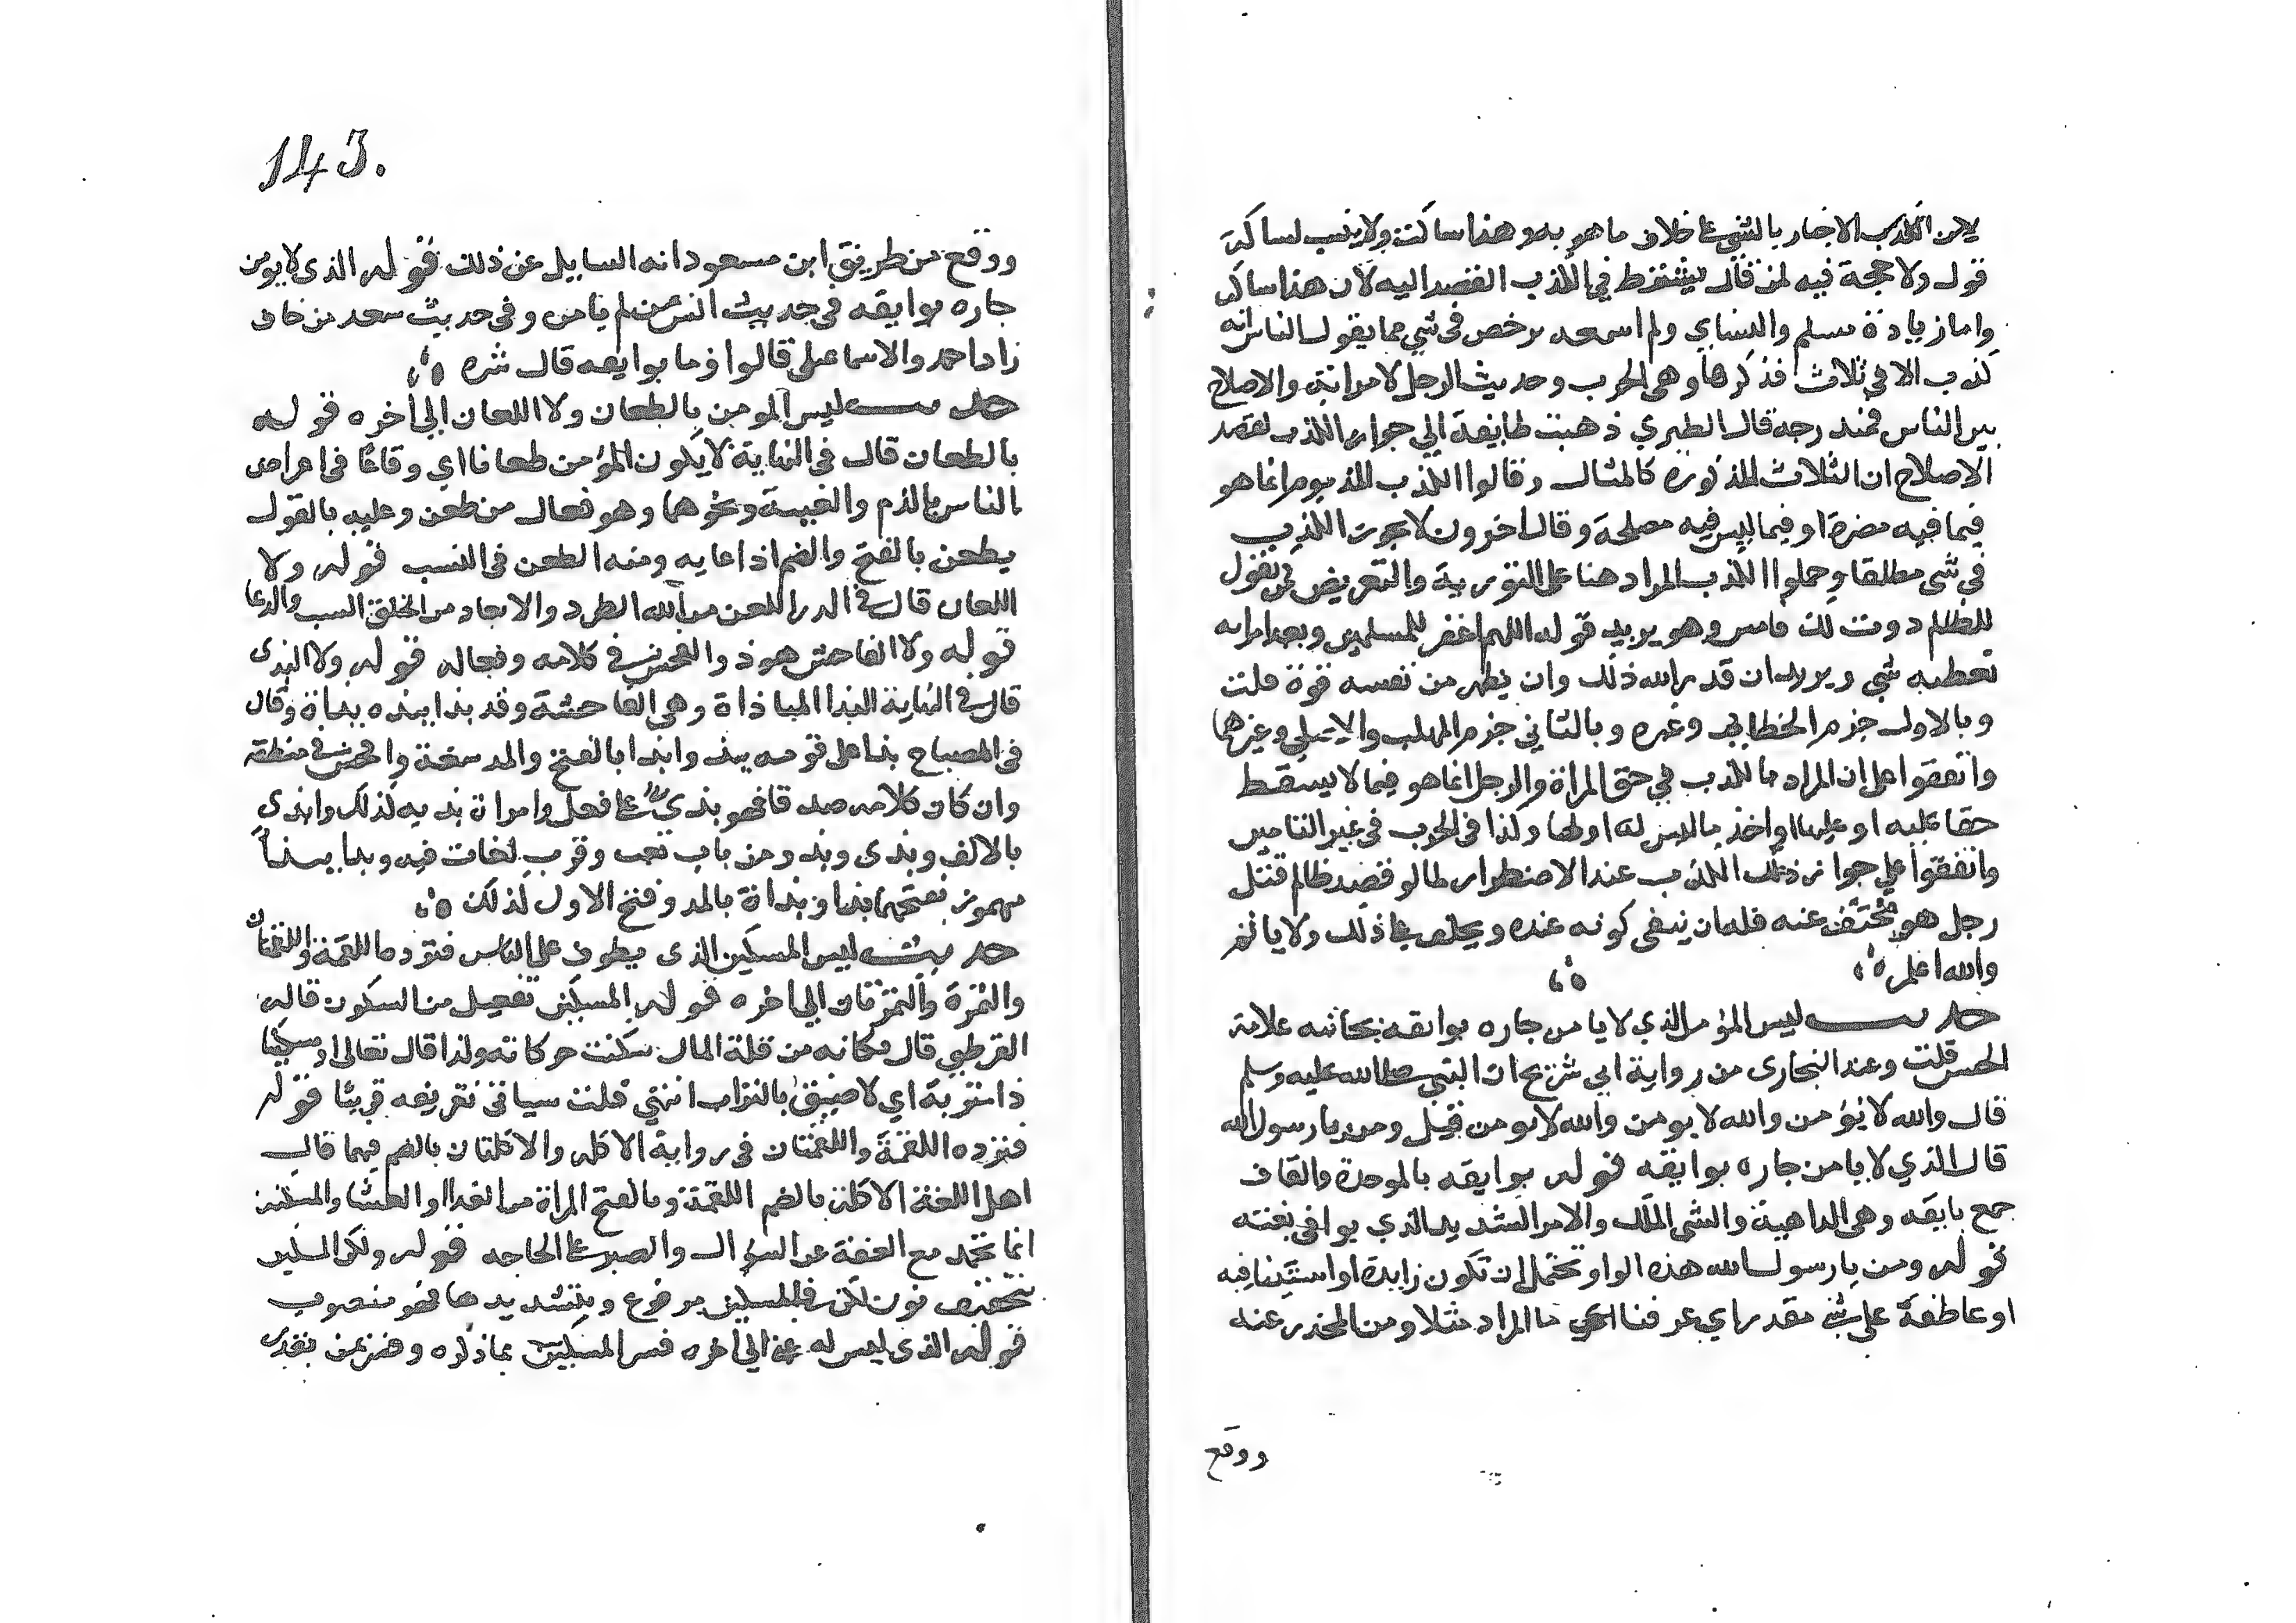 لان الكذب الاخبار بالشي علي خلاف ما هو به وهذا ساكت ولا ينسب لساكت
قول ولا حجة فيه لمن قال يشترط في الكذب القصد اليه لان هذا ساكت
واما زيادة مسلم والنساي ولم اسمعه يرخص في شي مما يقول الناس انه
كذب الا في ثلاث فذكرها وهي الحرب وحديث الرجل لامراته والاصلاح
بين الناس قال الطبري ذهبت طايفة الي جواز الكذب لقصد
الاصلاح ان الثلاث المذكورة كالمثال وقالوا الكذب المذموم انما هو
فيما فيه مضرة او فيما ليس فيه مصلحة وقال اخرون لا يجوز الكذب
في شي مطلقا وحملوا الكذب المراد هنا على التورية والتعريض كمن يقول
للظالم دعوت لك امس وهو يريد قوله اللهم اغفر للمسلمين ويعد امراته
تعطيه شي ويريد ان قدر الله ذلك وان يظهر من نفسه قوة قلت
وبالاول جزم الخطابي وغيره وبالثاني جزم المهلب والاصيلي وغيرهما
واتفقوا على ان المراد بالكذب في حق المراة والرجل انما هو فيما لا يسقط
حقا عليه او عليها او اخذ ما ليس له او لها وكذا في الحرب في غير التامين
واتفقوا علي جواز ذلك الكذب عند الاضطرار كما لو قصد ظالم قتل
رجل هو مختف عنه فله ان ينفى كونه عنده ويحلف علي ذلك ولا ياثم
والله اعلم
حديث ليس المؤمن الذي لا يامن جاره بوايقه بجانبه علامة
الحسن قلت وعند البخارى من رواية ابي شريح ان النبي صلى الله عليه وسلم
قال والله لا يؤمن والله لا يومن والله لا يومن قيل ومن يا رسول الله
قال الذي لا يامن جاره بوايقه قوله بوايقه بالموحدة والقاف
جمع بايقه وهى الداهية والشى المهلك والامر الشديد الذي يوافى بغتة
قوله ومن يا رسول الله هذه الواو تحتمل ان تكون زايدة او استينافيه
او عاطفة على شي مقدر اي عرفنا ما المراد مثلا ومن المحذر عنه
ووقع
143.
ووقع من طريق ابن مسعود انه السايل عن ذلك قوله الذى لا يومن
جاره بوايقه في حديث انس من لم يامن وفى حديث سعد من خاف
زاد احمد والاسماعيلى قالوا وما بوايقه قال شره
حديث ليس المومن بالطعان ولا اللعان الي اخره قوله
بالطعان قال فى النهاية لا يكون المؤمن طعانا اي وقاعا فى اعراض
الناس بالذم والغيبة ونحوهما وهو فعال من طعن وعليه بالقول
يطعن بالفتح والضم اذا عابه ومنه الطعن فى النسب قوله ولا
اللعان قال في الدر اللعن من الله الطرد والابعاد من الخلق السب والدعا
قوله ولا الفاحش هو ذو الفحش في كلامه وفعاله قوله ولا البذى
قال في النهاية البذا المباذاة وهى الفاحشة وقد بذا يبذه بذاة وقال
فى المصباح بذا على قومه يبذ وابذا بالفتح والمد سفه وافحش في منطقه
وان كان كلامه صدقا فهو بذي علي فعل وامراة بذيه لذلك وابذى
بالالف وبذى وبذو من باب تعب وقرب لغات فيه وبذا يبذا
مهموز بفتحهما بذا وبذاة بالمد وفتح الاول لذلك
حديث ليس المسكين الذى يطوف على الناس فترده اللقمة واللقمتان
والتمرة والتمرتان الي اخره قوله المسكين مفعيل من السكون قاله
القرطبي قال وكانه من قلة المال سكنت حركاته ولذا قال تعالى او مسكينا
ذا متربة اي لاصيق بالتراب انتهي قلت سياتى تعريفه قريبا قوله
فترده اللقمة واللقمتان فى رواية الاكله والاكلتان بالضم فيهما قال
اهل اللغة الاكلة بالضم اللقمة وبالفتح المراة من الغدا والعشا والمسكين
انما تحمد مع العفة عن السؤال والصبر علي الحاجه قوله ولكن المسكين
بتخفيف نون لكن فالمسكين مرفوع وبتشديدها فهو منصوب
قوله الذى ليس له غني الى اخره فسر المسكين بما ذكره وفسر بمن يقدر